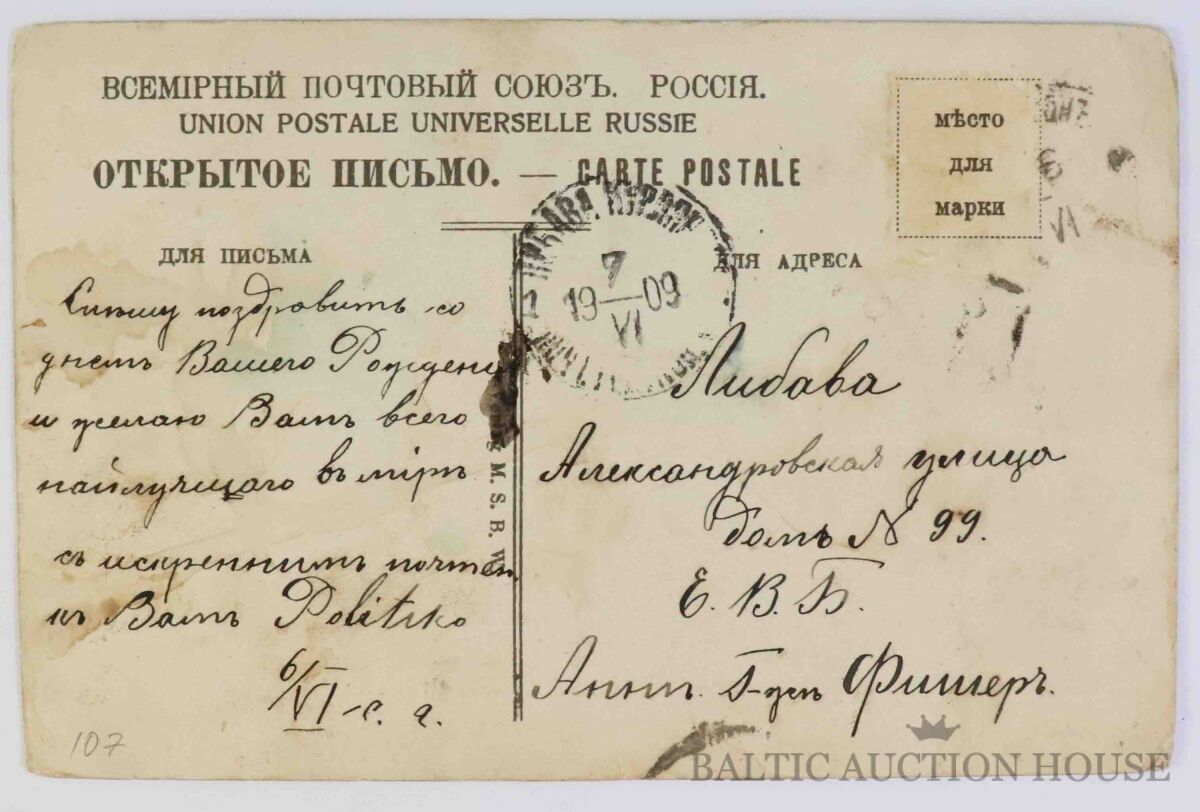 ВСЕМІРНЫЙ ПОЧТОВЫЙ СОЮЗЪ. РОССІЯ.
UNION POSTALE UNIVERSELLE RUSSIE
ОТКРЫТОЕ ПИСЬМО. — CARTE POSTALE
мѣсто
для
марки
ДЛЯ ПИСЬМА
Спѣшу поздровить со
днемъ Вашего Рожденi
и желаю Вамъ всего
найлучщаго въ мірѣ
съ искреннимъ почтен.
къ Вамъ Politsko
6/VI - с. г.
107
M. S. B. W.
ЛИБАВА
7
19—09
VI
6
VI
ДЛЯ АДРЕСА
Либава
Александровская улица
домъ N 99.
Е. В. Б.
Аннѣ. Фишеръ.
BALTIC AUCTION HOUSE